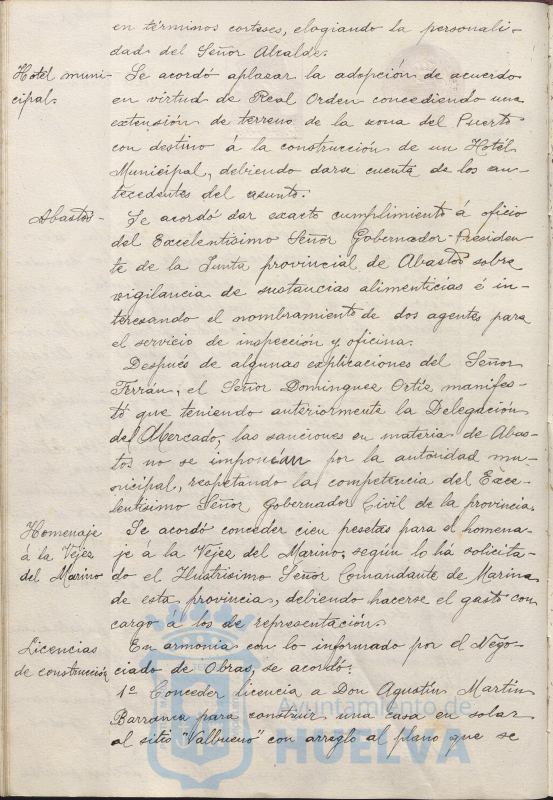 en términos corteses, elogiando la personali-
dad del Señor Alcalde.
Hotel muni-
cipal.
Se acordó aplazar la adopción de acuerdo
en virtud de Real Orden concediendo una
extensión de terreno de la zona del Puerto
con destino á la construcción de un Hotel
Municipal, debiendo darse cuenta de los an-
tecedentes del asunto.
Abastos-
Se acordó dar exacto cumplimiento á oficio
del Excelentisimo Señor Gobernador-Presiden-
te de la Junta provincial de Abastos sobre
vigilancia de sustancias alimenticias é in-
teresando el nombramiento de dos agentes para
el servicio de inspección y oficina.
Después de algunas explicaciones del Señor
Terrán, el Señor Dominguez Ortiz manifes-
tó que teniendo anteriormente la Delegación
del Mercado, las sanciones en materia de Abas-
tos no se imponían por la autoridad mu-
nicipal, respetando la competencia del Exce-
lentisimo Señor Gobernador Civil de la provincia.
Homenaje
á la Vejez
del Marino
Se acordó conceder cien pesetas para el homena-
je á la Vejez del Marino, según lo ha solicita-
do el Ilustrisimo Señor Comandante de Marina
de esta provincia, debiendo hacerse el gasto con
cargo á los de representación.
Licencias
de construcción
En armonia con lo informado por el Nego-
ciado de Obras, se acordó:
1º Conceder licencia a Don Agustín Martin
Barranca para construir una casa en solar
al sitio "Valbueno" con arreglo al plano que se
Ayuntamiento de
HUELVA